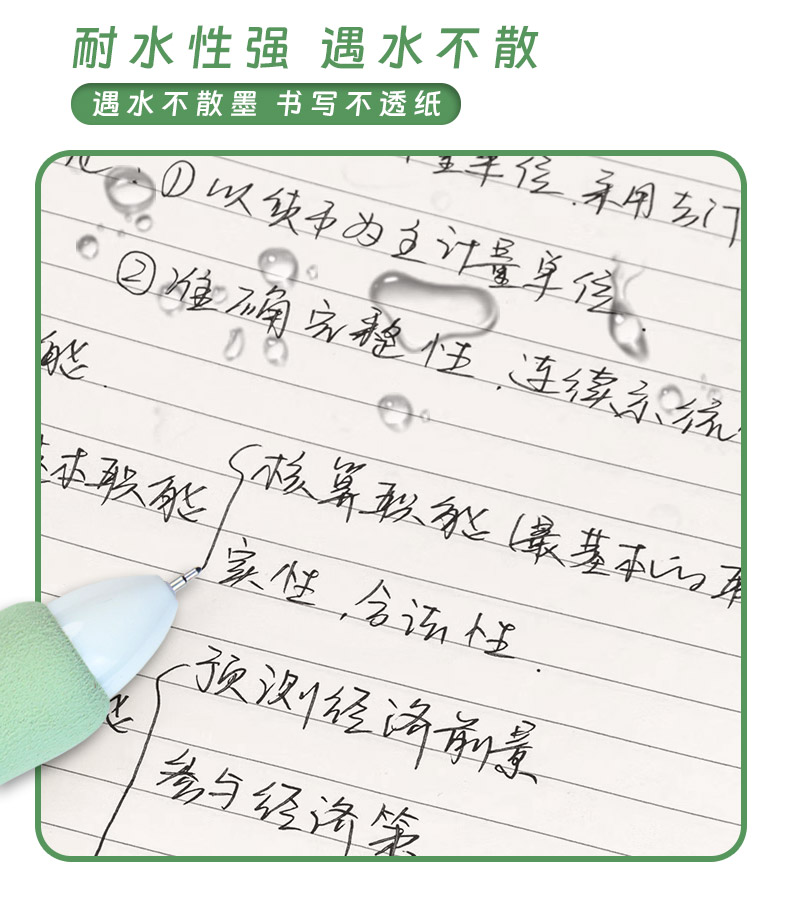 耐水性强 遇水不散
遇水不散墨 书写不透纸
单位.采用专门
①以货币为主计量单位.
②准确完整性.连续系统
能.
基本职能
核算职能(最基本的
实性,合法性.
预测经济前景
参与经济策